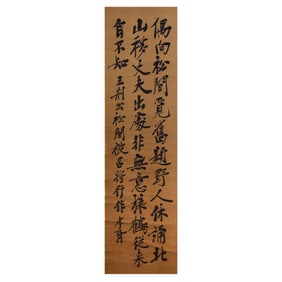 偶向松間覓舊題野人休誦北
山移丈夫出處非無意猿鶴從來
自不知 王荊公松間被召將行作 孝胥